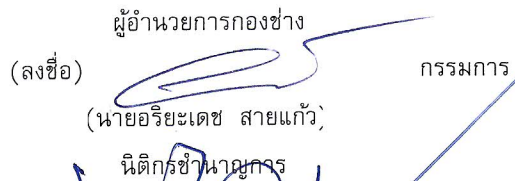 ผู้อำนวยการกองช่าง
(ลงชื่อ) กรรมการ
(นายอริยะเดช สายแก้ว)
นิติกรชำนาญการ